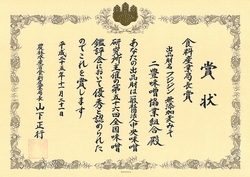 賞状
食料産業局長賞
出品財名 フンドーキン 無添加麦みそ
二豊味噌協業組合殿
あなたの出品財は一般社団法人中央味噌
研究所主催の第五十六回全国味噌
鑑評会において優秀と認められた
のでこれを賞します
平成二十五年十一月二十二日
農林水産省食料産業局長 山下正行